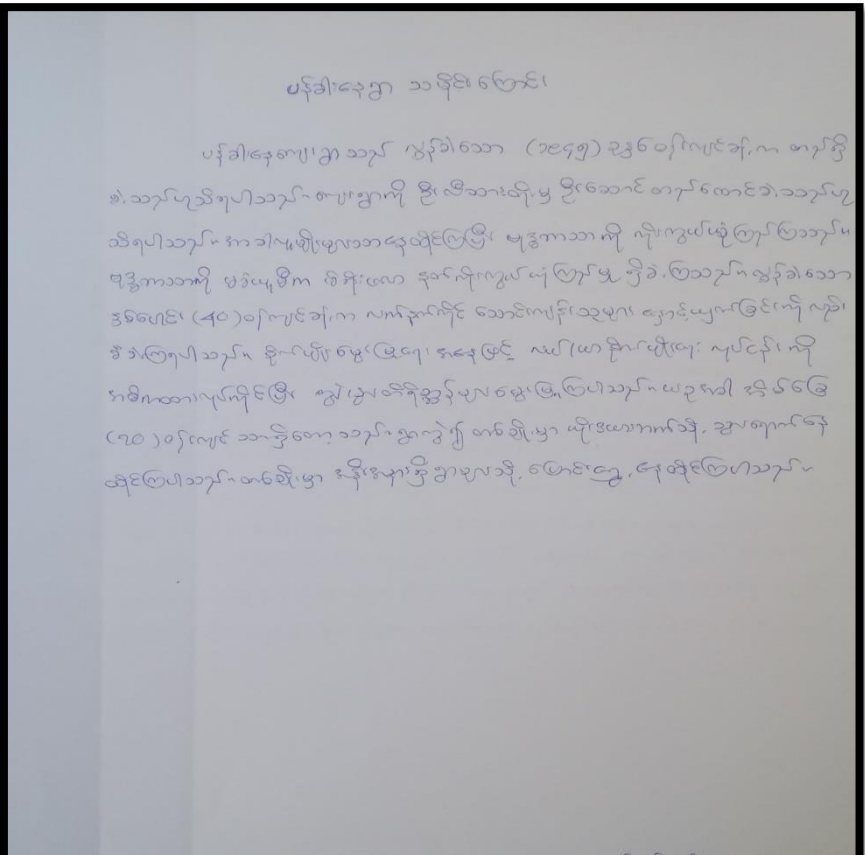 ပန်ခါးနေရွာ သမိုင်းကြောင်း
ပန်ခါးနေကျေးရွာသည် လွန်ခဲ့သော (၁၉၄၅) ခုနှစ်ဝန်းကျင်ခန့်က တည်ရှိ
ခဲ့သည်ဟုသိရပါသည်။ ကျေးရွာကို ဦးလီသားထိုးမှ ဦးဆောင်တည်ထောင်ခဲ့သည်ဟု
သိရပါသည်။ အာခါလူမျိုးများသာနေထိုင်ကြပြီး ဗုဒ္ဓဘာသာကို ကိုးကွယ်ယုံကြည်ကြသည်။
ဗုဒ္ဓဘာသာကို မခံယူမီက မိရိုးဖလာ နတ်ကိုးကွယ်ယုံကြည်မှု ရှိခဲ့ကြသည်။ လွန်ခဲ့သော
နှစ်ပေါင်း (၄၀) ဝန်းကျင်ခန့်က လက်နက်ကိုင် သောင်းကျန်းသူများ နှောင့်ယှက်ခြင်းကိုလည်း
ခံခဲ့ကြရပါသည်။ စိုက်ပျိုးမွေးမြူရေး အနေဖြင့် လယ်ယာစိုက်ပျိုးရေး လုပ်ငန်းကို
အဓိကထားလုပ်ကိုင်ပြီး ကျွဲ၊ နွား တိရိစ္ဆာန်များမွေးမြူကြပါသည်။ ယခုအခါ အိမ်ခြေ
(၇၀) ဝန်းကျင် သာရှိတော့သည်။ ရွာကွဲ၍ တစ်ချို့မှာ ယိုးဒယားဘက်သို့ သွားရောက်နေ
ထိုင်ကြပါသည်။ တစ်ချို့မှာ အနီးအနားရှိရွာများသို့ ပြောင်းရွှေ့ နေထိုင်ကြပါသည်။